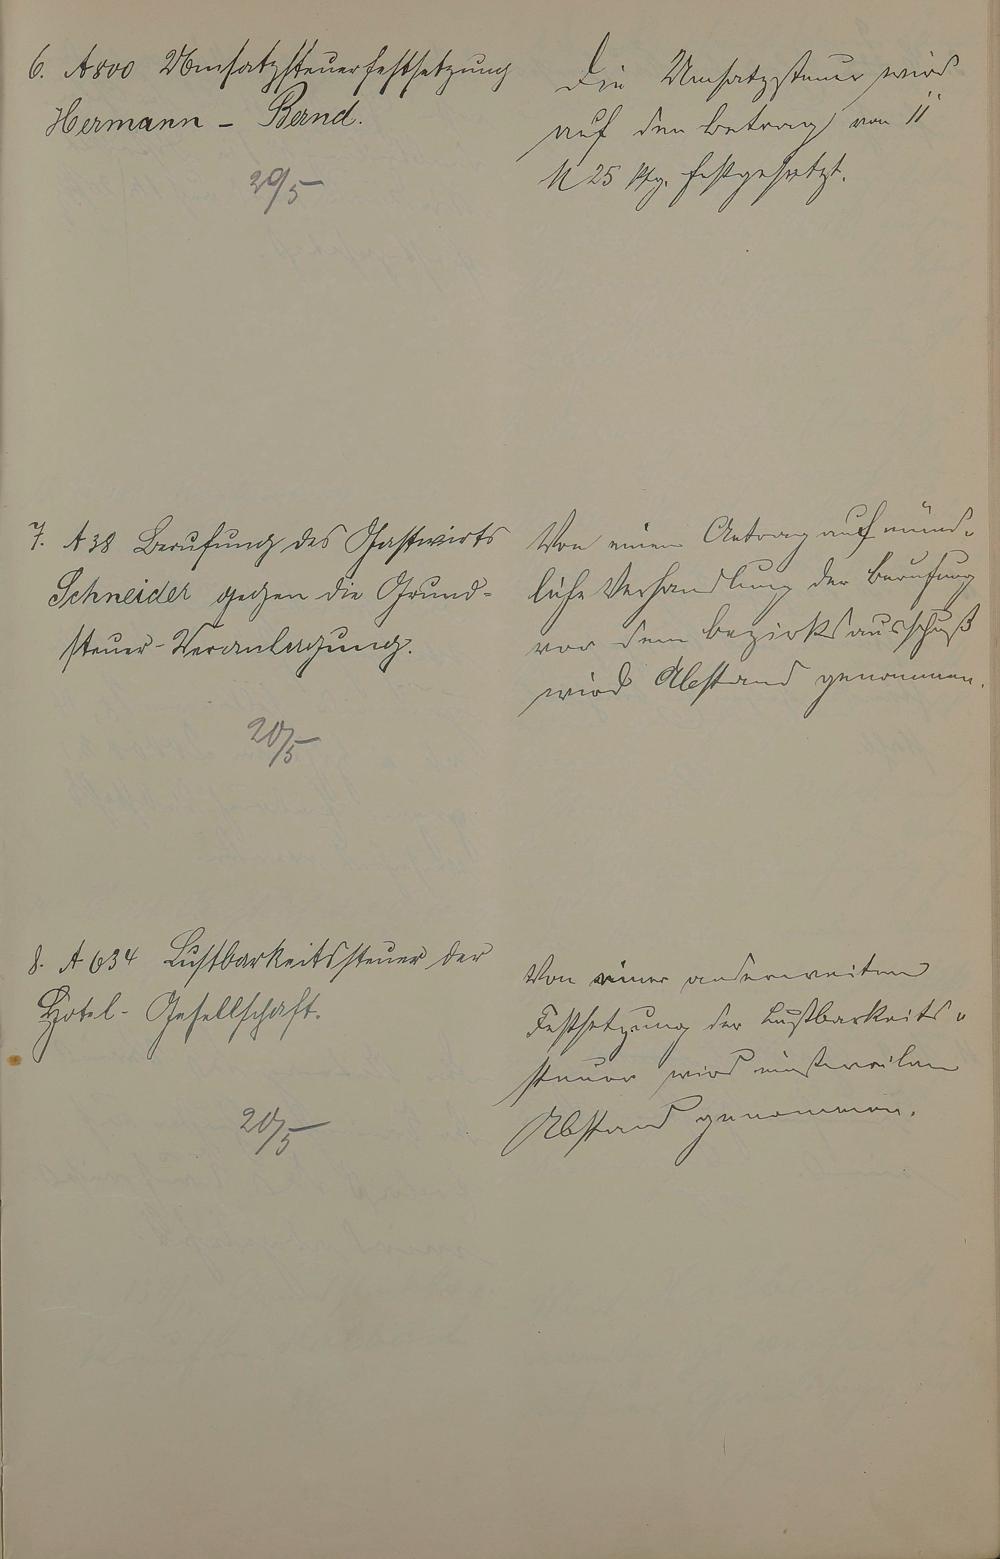 6. A 800 Umsatzsteuerfestsetzung
Hermann - Bernd.
20/5
Die Umsatzsteuer wird
auf den Betrag von 11
M 25 Pfg. festgesetzt.
7. A 38 Berufung des Gastwirts
Schneider gegen die Grund-
steuer-Veranlagung.
20/5
Von einem Antrag auf münd-
liche Verhandlung der Berufung
vor dem Bezirksausschuß
wird Abstand genommen.
8. A 634 Lustbarkeitssteuer der
Hotel-Gesellschaft.
20/5
Von einer anderweiten
Festsetzung der Lustbarkeits-
steuer wird einstweilen
Abstand genommen.